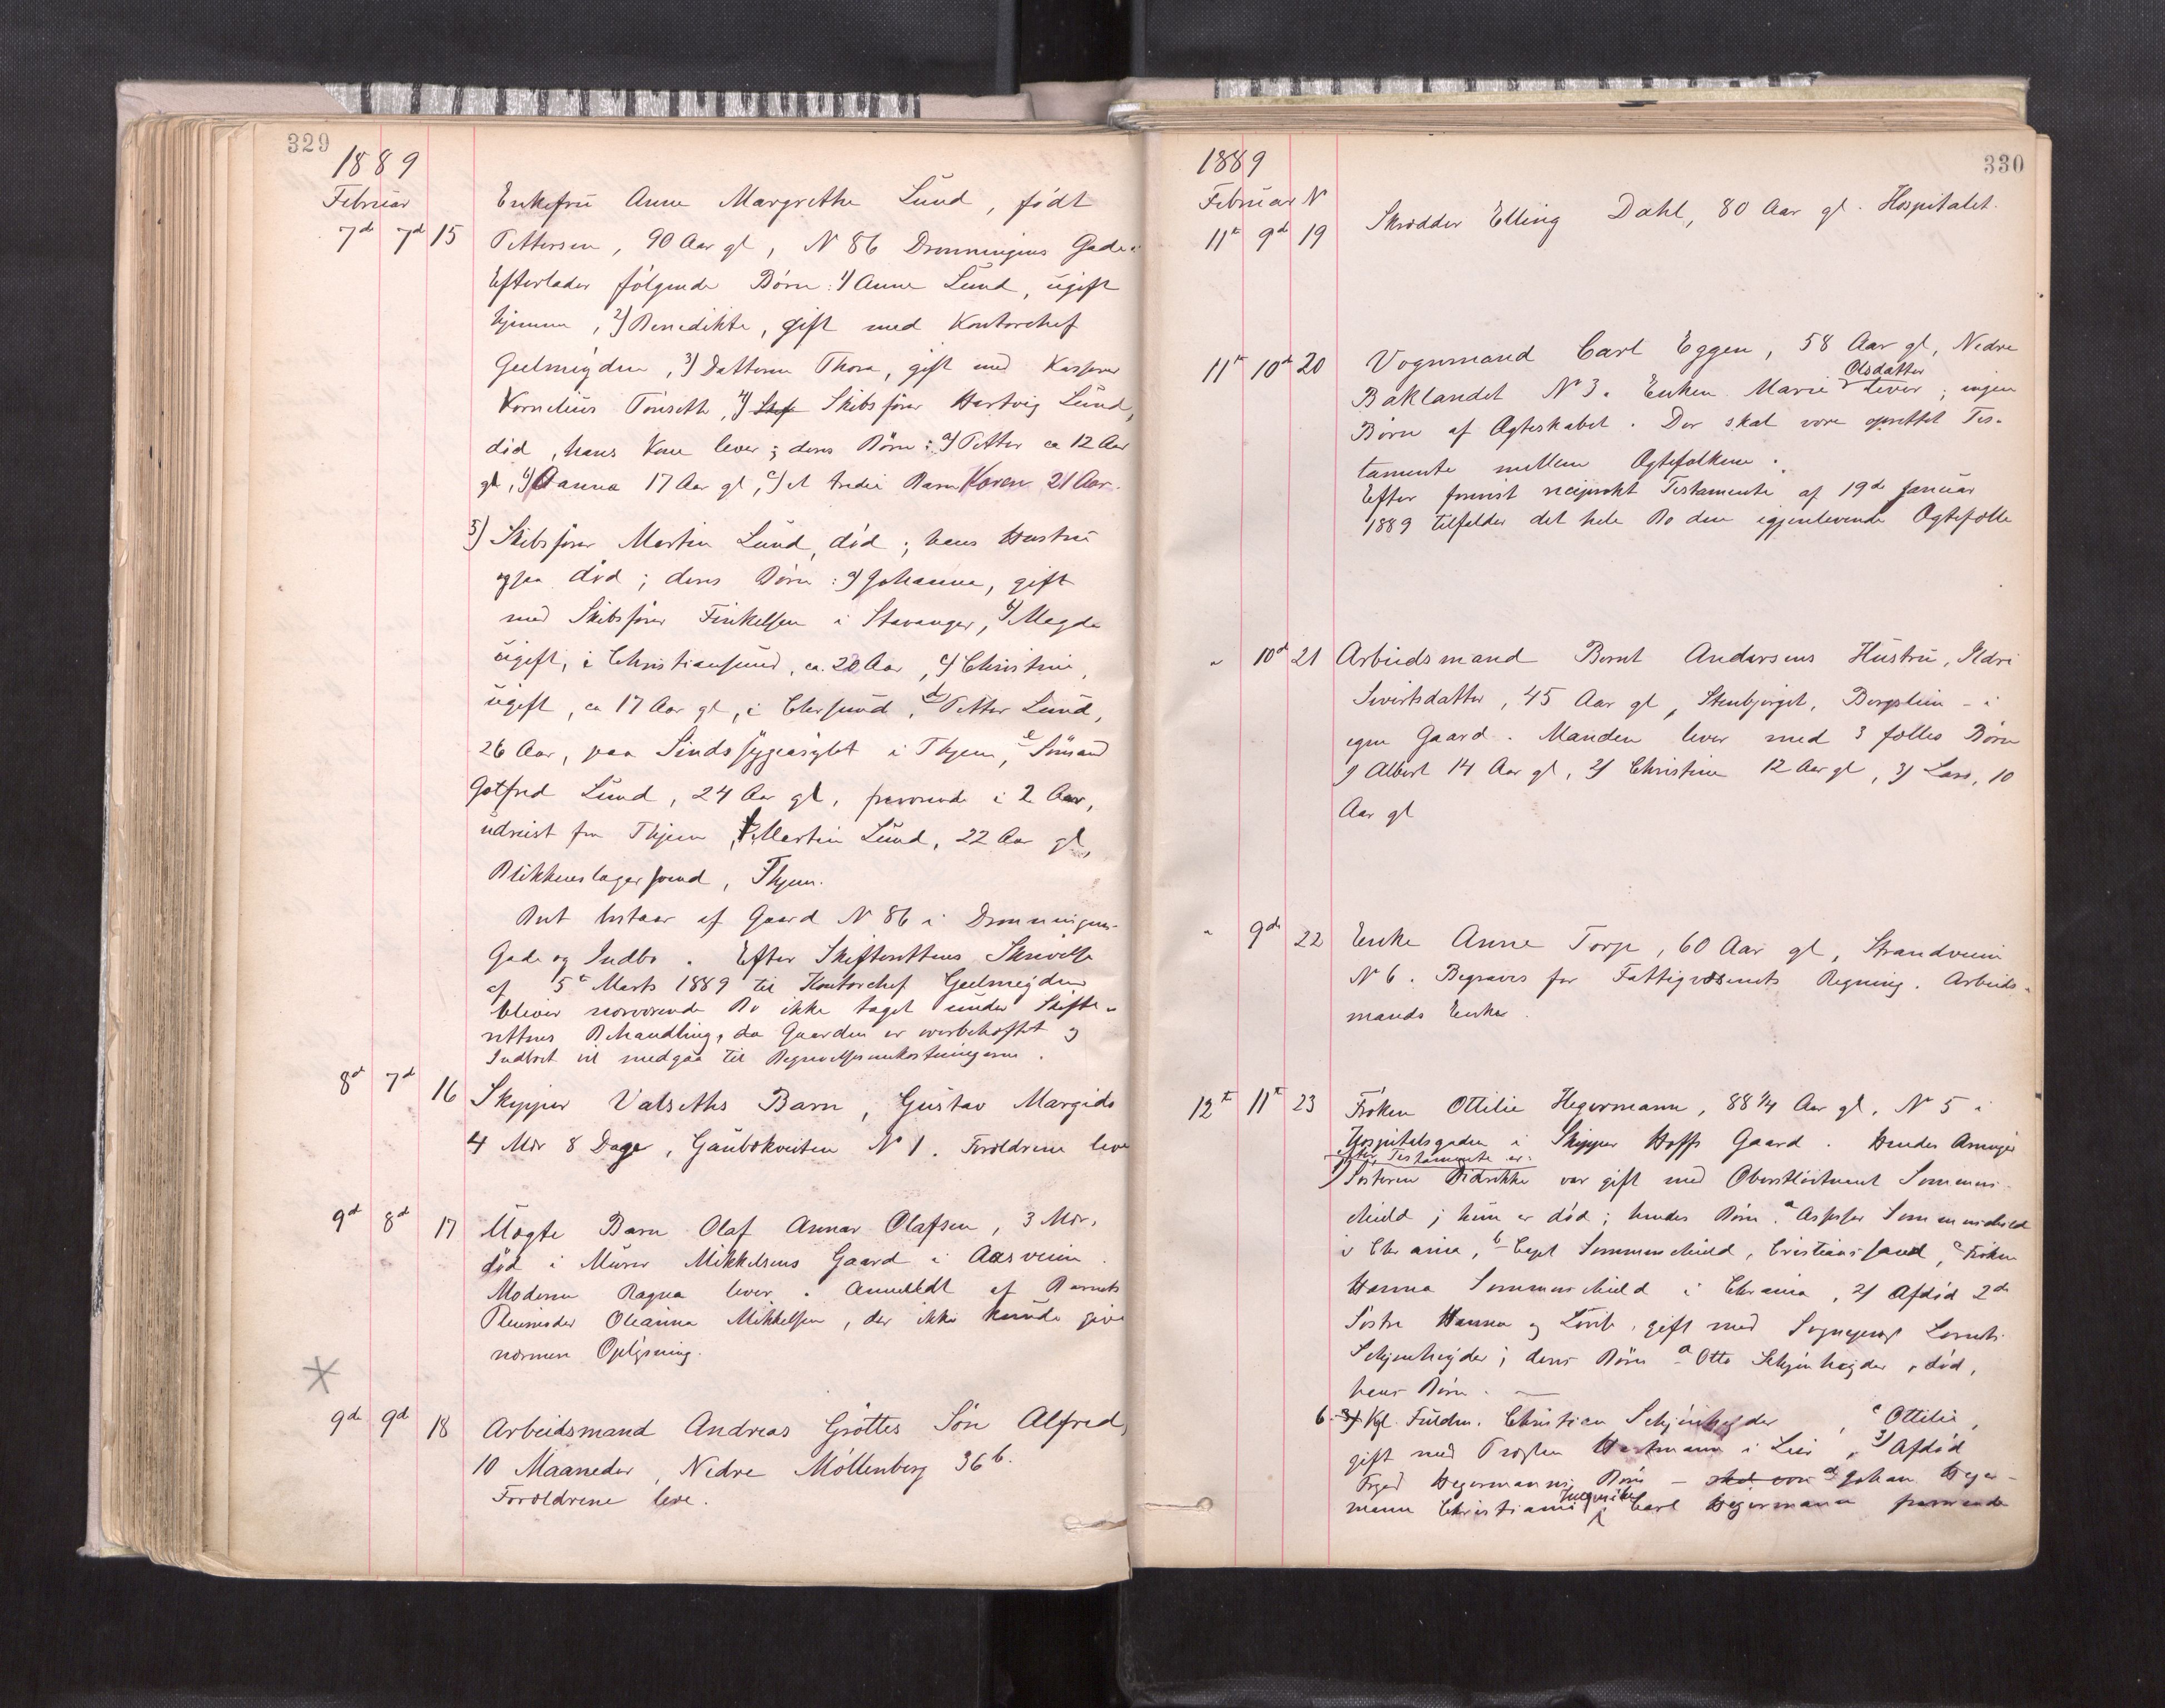 329
1889
Februar
7de 7de 15 Enkefru Anne Margrethe Lund, født
Pettersen, 90 Aar gl, N 86 Dronningens Gade.
Efterlader følgende Børn: 1) Anne Lund, ugift
hjemme, 2) Benedikte, gift med Kontorchef
Geelmeyden, 3) Datteren Thora, gift med Kasserer
Kornelius Tønseth, 4) Skibsfører Hartvig Lund,
død, hans Kone lever; deres Børn: a) Petter ca 12 Aar
gl, b) Hanna 17 Aar gl, c) et tredie Barn Karen 21 Aar.
5) Skibsfører Martin Lund, død; hans Hustru
ogsaa død; deres Børn: a) Johanna, gift
med Skibsfører Finkelsen i Stavanger, b) Magda
ugift, i Christiansund, ca. 20 Aar, c) Christine,
ugift, ca 17 Aar gl, i Chrsund, d) Petter Lund,
26 Aar, paa Sindssygeasylet i Thjem, e Sømand
Gotfred Lund, 24 Aar gl, fraværende i 2 Aar,
udreist fra Thjem, f. Martin Lund, 22 Aar gl,
Blikkenslagersvend, Thjem.
Boet bestaar af Gaard N 86 i Dronningens
Gade og Indbo. Efter Skifterettens Skrivelse
af 5te Marts 1889 til Kontorchef Geelmeyden
bliver nærværende Bo ikke taget under Skifte-
rettens Behandling, da Gaarden er overbehæftet og
Indboet vil medgaa til Begravelsesomkostningerne.
8de 7de 16 Skipper Valseths Barn, Gustav Margido
4 Mdr 8 Dage, Gaubækveiten N 1. Forældrene leve
9de 8de 17 Uægte Barn Olaf Annar Olafsen, 3 Mdr.
død i Murer Mikkelsens Gaard i Aasveien.
Moderen Ragna lever. Anmeldt af Barnets
Pleiemoder Oleanna Mikkelsen, der ikke kunde give
nærmere Oplysning.
9de 9de 18 Arbeidsmand Andreas Grøttes Søn Alfred,
10 Maaneder, Nedre Møllenberg 36 b.
Forældrene leve.
330
1889
Februar N
11te 9de 19 Skrædder Elling Dahl, 80 Aar gl. Hospitalet.
11te 10de 20 Vognmand Carl Eggen, 58 Aar gl, Nedre
Baklandet N 3. Enken Marie Olsdatter lever; ingen
Børn af Ægteskabet. Der skal være oprettet Tes-
tamente mellem Ægtefolkene.
Efter forevist reciprokt Testamente af 19de Januar
1889 tilfalder det hele Bo den igjenlevende Ægtefælle
" 10de 21 Arbeidsmand Bernt Andersens Hustru, Ildri
Sivertsdatter, 45 Aar gl, Stenbjerget, Bergslien - i
egen Gaard. Manden lever med 3 fælles Børn
1) Albert 14 Aar gl, 2) Christine 12 Aar gl, 3) Lars, 10
Aar gl
" 9de 22 Enke Anne Torp, 60 Aar gl, Strandveien
N 6. Begraves for Fattigvæsenets Regning. Arbeids-
mands Enke.
12te 11te 23 Frøken Ottilie Hegermann, 88 1/4 Aar gl, N 5 i
Hospitalsgaden i Skipper Hoffs Gaard. Hendes Arvinger
efter Testamente er:
1) Søsteren Didrikke var gift med Oberstløitnant Sommer-
schield; hun er død; hendes Børn: a Assessor Sommerschield
i Chrania, b Capt Sommerschield, Cristianssand, c Frøken
Hanna Sommerschield i Chrania, 2) Afdød 2de
Søstre Hanna og Lovise, gift med Sogneprest Lorents
Schjenheyder; deres Børn a Otto Schjenheyder, død,
hans Børn. —
b Kgl. Fuldm. Christian Schjenheyder, c Ottilie,
gift med Provsten Hartmann i Lier, 3) Afdød
Hegermanns Børn - a Johan Heger-
mann Christiania, Carl Hegermann fraværende